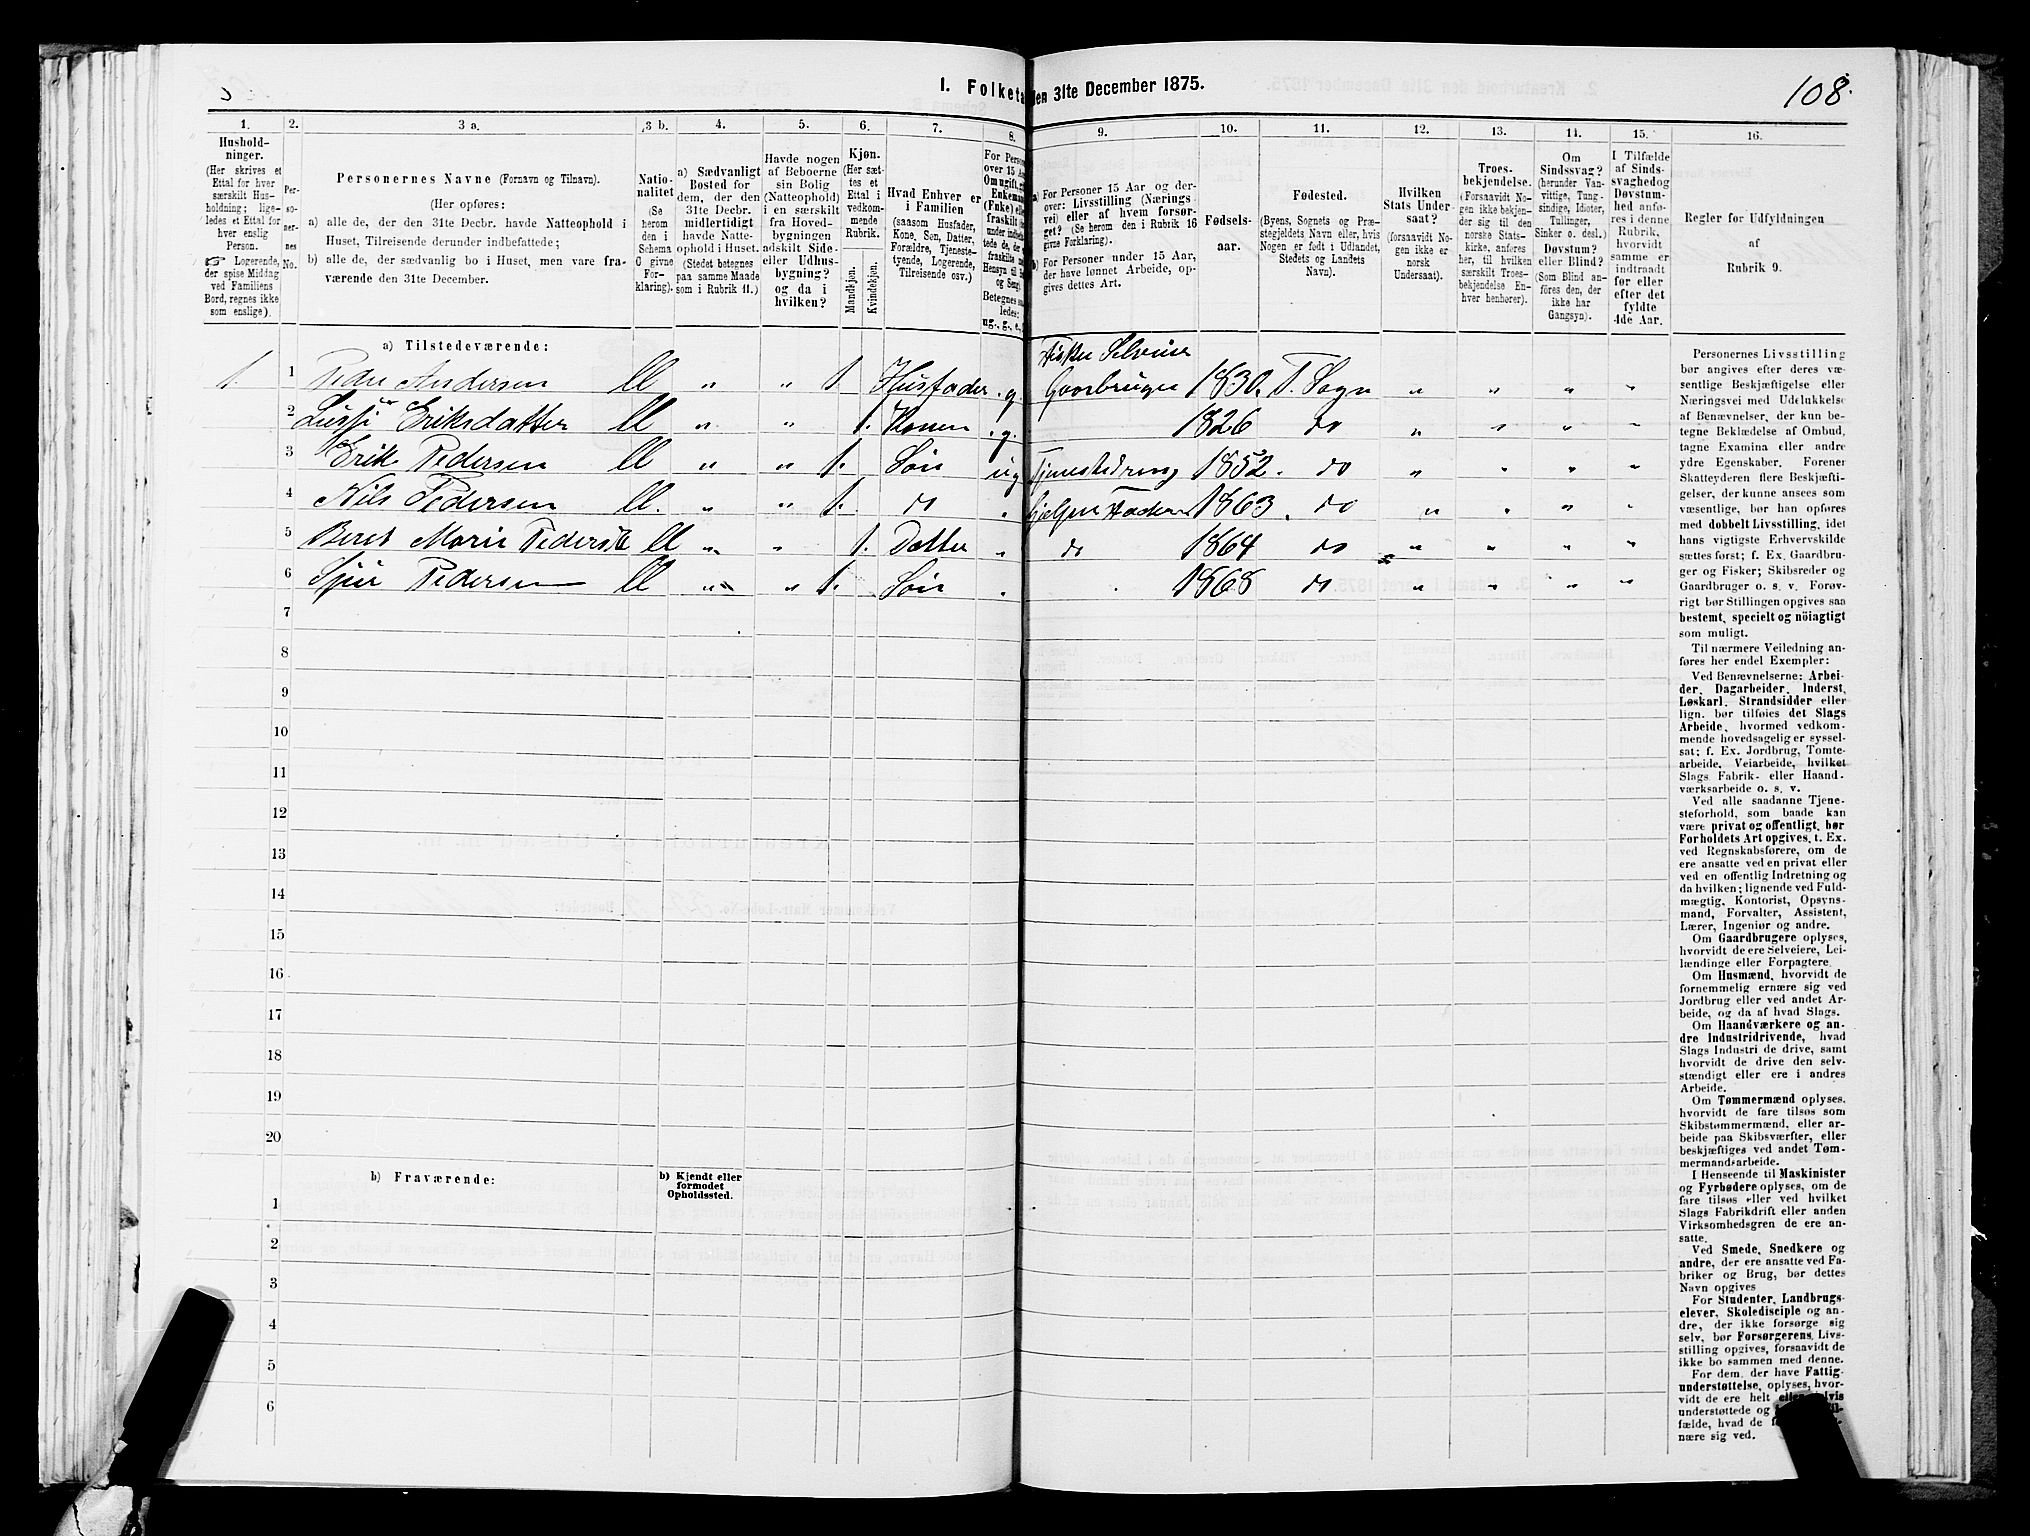 1. Folketæ
len 31te December 1875.
108.
1.
2.
3 a.
3 b.
4.
5.
6.
7.
8.
9.
10.
11.
12.
13.
14.
15.
16.
Hushold-
ninger.
(Her skrives et
Ettal for hver
særskilt Hus-
holdning; lige-
ledes et Ettal for
hver enslig
Person.
☞ Logerende,
der spise Middag
ved Familiens
Bord, regnes ikke
som enslige).
Per-
so-
ner-
nes
No.
Personernes Navne (Fornavn og Tilnavn).
(Her opføres:
a) alle de, der den 31te Decbr. havde Natteophold i
Huset, Tilreisende derunder indbefattede;
b) alle de, der sædvanlig bo i Huset, men vare fra-
værende den 31te December.
Natio-
nalitet
(Se
herom
den i
Schema
C givne
For-
klaring).
a) Sædvanligt
Bosted for
dem, der den
31te Decbr.
midlertidigt
havde Natte-
ophold i Huset.
(Stedet betegnes
paa samme Maade
som i Rubrik 11.)
Havde nogen
af Beboerne
sin Bolig
(Natteophold)
i en særskilt
fra Hoved-
bygningen
adskilt Side-
eller Udhus-
bygning?
og da i
hvilken?
Kjøn.
(Her sæt-
tes et
Ettal i
vedkom-
mende
Rubrik.
Mandkjøn.
Kvindekjøn.
Hvad Enhver er
i Familien
(saasom Husfader,
Kone, Søn, Datter,
Forældre, Tjeneste-
tyende, Logerende,
Tilreisende osv.)
For Person
over 15 Aa
Om ugift, gi
Enkeman
(Enke) elle
fraskilt
a) For Personer 15 Aar og der-
over: Livsstilling (Nærings
vei) eller af hvem forsør-
get? (Se herom i Rubrik 16
givne Forklaring).
b) For Personer under 15 Aar,
der have lønnet Arbeide, op-
gives dettes Art.
Fødsels-
aar.
Fødested.
(Byens, Sognets og Præ-
stegjeldets Navn eller, hvis
Nogen er født i Udlandet,
Stedets og Landets
Navn).
Hvilken
Stats Under-
saat?
(forsaavidt No-
gen ikke er
norsk
Undersaat).
Troes-
bekjendelse.
(Forsaavidt No-
gen ikke bekjen-
der sig til den
norske Stats-
kirke, anføres
her, til hvilken
særskilt Troes-
bekjendelse En-
hver henhører).
Om
Sindssvag?
(herunder Van-
vittige, Tung-
sindige, Idioter,
Tullinger,
Sinker o. desl.)
Døvstum?
eller Blind?
(Som Blind an-
føres den, der
ikke har
Gangsyn).
I Tilfælde
af Sinds-
svaghed og
Døvstum-
hed anfø-
res i denne
Rubrik,
hvorvidt
samme er
indtraadt
før eller
efter det
fyldte
4de Aar.
Regler for Udfyldningen
af
Rubrik 9.
a) Tilstedeværende:
Fisker Selveier
1. 1 Peder Andersen U „ „ 1. Husfader g. Gaardbruger 1830. T. Sogn „ „ „ „
2 Eriksdatter U „ „ 1. Konen g. 1826 do „ „ „ „
3 Erik Pedersen U „ „ 1. Søn ug Tjenestedreng 1852. do „ „ „ „
4 Nils Pedersen U. „ „ 1. do „ hjelper Faderen 1863. do „ „ „ „
5 Beret Marie U „ „ 1. Datter „ do 1864 do „ „ „ „
6 Pedersen U „ „ 1. Søn „ 1868 do „ „ „ „
7
8
9
10
11
12
13
14
15
16
17
18
19
20
b) Fraværende:
b) Kjendt eller
formodet
Opholdssted.
1
2
3
4
5
6
Personernes Livsstilling
bør angives efter deres væ-
sentlige Beskjæftigelse eller
Næringsvei med Udelukkelse
af Benævnelser, der kun be-
tegne Beklædelse af Ombud,
tagne Examina eller andre
ydre Egenskaber. Forener
Skatteyderen flere Beskjæfti-
gelser, der kunne ansees som
væsentlige, bør han opføres
med dobbelt Livsstilling, idet
hans vigtigste Erhvervskilde
sættes først; f. Ex. Gaardbru-
ger og Fisker; Skibsreder og
Gaardbruger o. s. v. Forøv-
rigt bør Stillingen opgives saa
bestemt, specielt og nöiagtigt
som muligt.
Til nærmere Veiledning an-
føres her endel Exempler:
Ved Benævnelserne: Arbei-
der, Dagarbeider, Inderst,
Løskarl, Strandsidder eller
lign. bør tilføies det Slags
Arbeide, hvormed vedkom-
mende hovedsagelig er syssel-
sat; f. Ex. Jordbrug, Tomte-
arbeide, Veiarbeide, hvilket
Slags Fabrik- eller Haand-
værksarbeide o. s. v.
Ved alle saadanne Tjene-
steforhold, som baade kan
være privat og offentligt, bør
Forholdets Art opgives, t. Ex.
ved Regnskabsførere, om de
ere ansatte ved en privat eller
ved en offentlig Indretning og
da hvilken; lignende ved Fuld-
mægtig, Kontorist, Opsyns-
mand, Forvalter, Assistent,
Lærer, Ingeniør og andre.
Om Gaardbrugere oplyses,
hvorvidt de ere Selveiere, Lei-
lændinge eller Forpagtere.
Om Husmænd, hvorvidt de
fornemmelig ernære sig ved
Jordbrug eller ved andet Ar-
beide, og da af hvad Slags.
Om Haandværkere og an-
dre Industridrivende, hvad
Slags Industri de drive, samt
hvorvidt de drive den selv-
stændigt eller ere i andres
Arbeide.
Om Tømmermænd oplyses,
hvorvidt de fare tilsøs som
Skibstømmermænd, eller ar-
beide paa Skibsværfter, eller
beskjæftiges ved andet Tøm-
mermandsarbeide.
I Henseende til Maskinister
og Fyrbødere oplyses, om de
fare tilsøs eller ved hvilket
Slags Fabrikdrift eller anden
Virksomhedsgren de ere an-
satte.
Ved Smede, Snedkere og
andre, der ere ansatte ved Fa-
briker og Brug, bør dettes
Navn opgives
For Studenter, Landbrugs-
elever, Skoledisciple og an-
dre, der ikke forsørge sig
selv, bør Forsørgerens, Livs-
stilling opgives, forsaavidt de
ikke bo sammen med denne.
For dem, der have Fattig-
understøttelse, oplyses, hvor-
vidt de ere helt eller delvis
understøttede og
fælde, hvad de
nære sig ved.